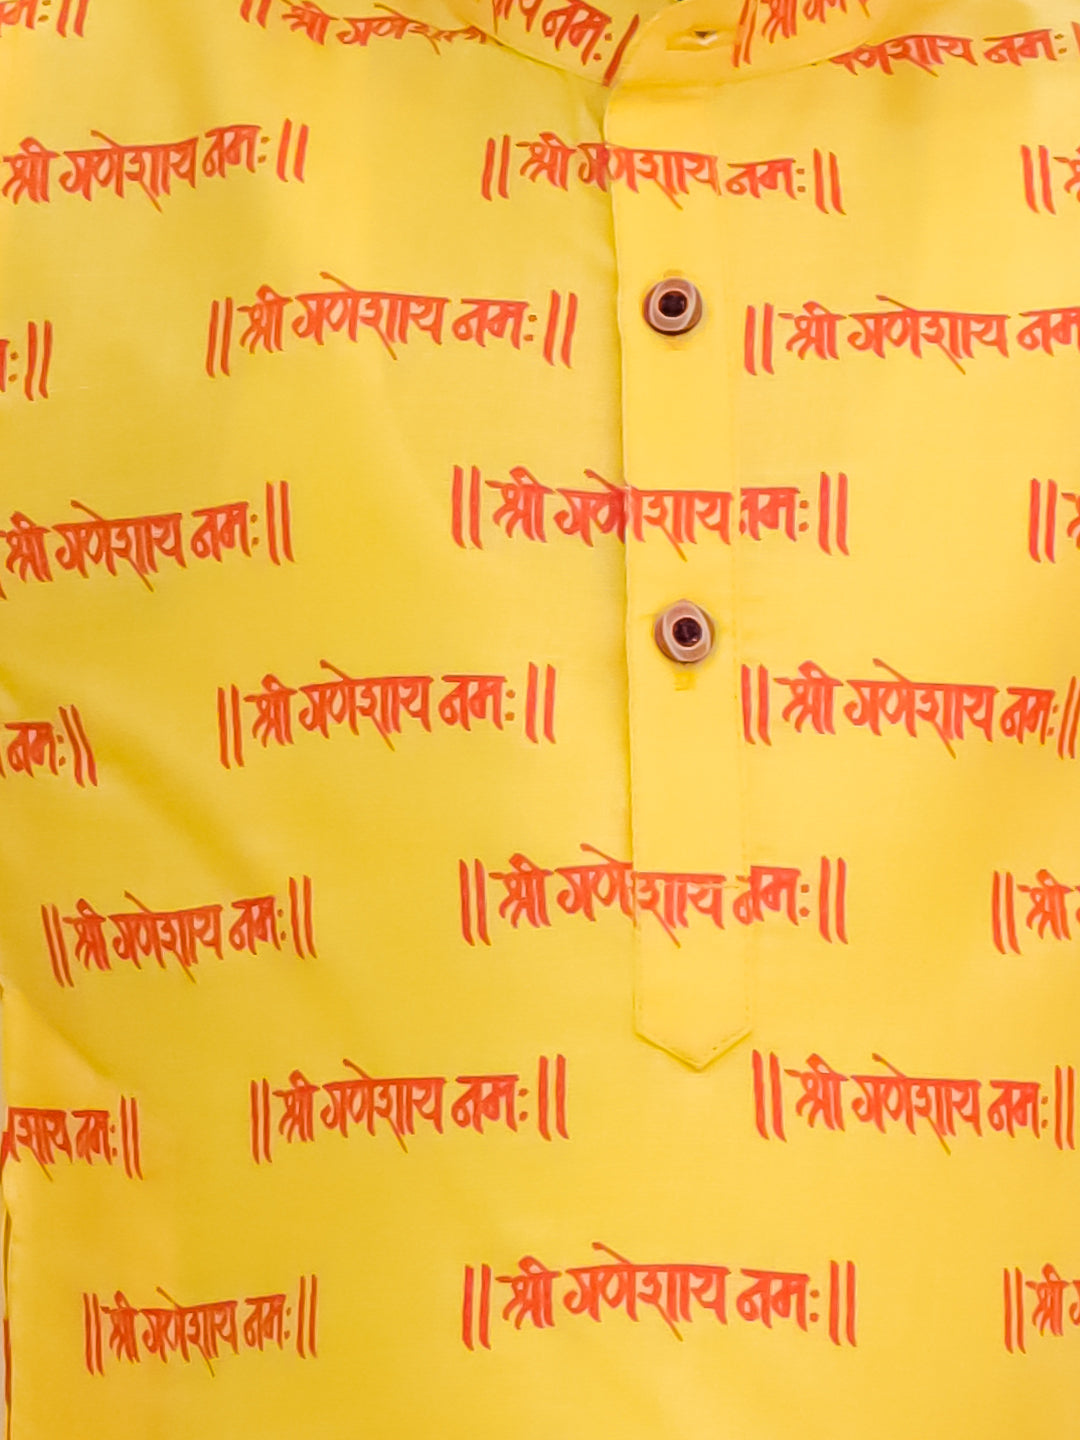 मः ॥ ॥ श्री गणेशाय नमः ॥ श्री
गणेशाय नमः
श्री गणेशाय नमः ॥ ॥ श्री गणेशाय नमः ॥ ॥
ः ॥ ॥ श्री गणेशाय नमः ॥ ॥ श्री गणेशाय नम
श्री गणेशाय नमः ॥ ॥ श्री गणेशाय नमः ॥ ॥
नमः ॥ ॥ श्री गणेशाय नमः ॥ ॥ श्री गणेशाय नमः ॥
॥ श्री गणेशाय नमः ॥ ॥ श्री गणेशाय नमः ॥ ॥ श्री
शाय नमः ॥ ॥ श्री गणेशाय नमः ॥ ॥ श्री गणेशाय नमः ॥
॥ श्री गणेशाय नमः ॥ ॥ श्री गणेशाय नमः ॥ ॥ श्री